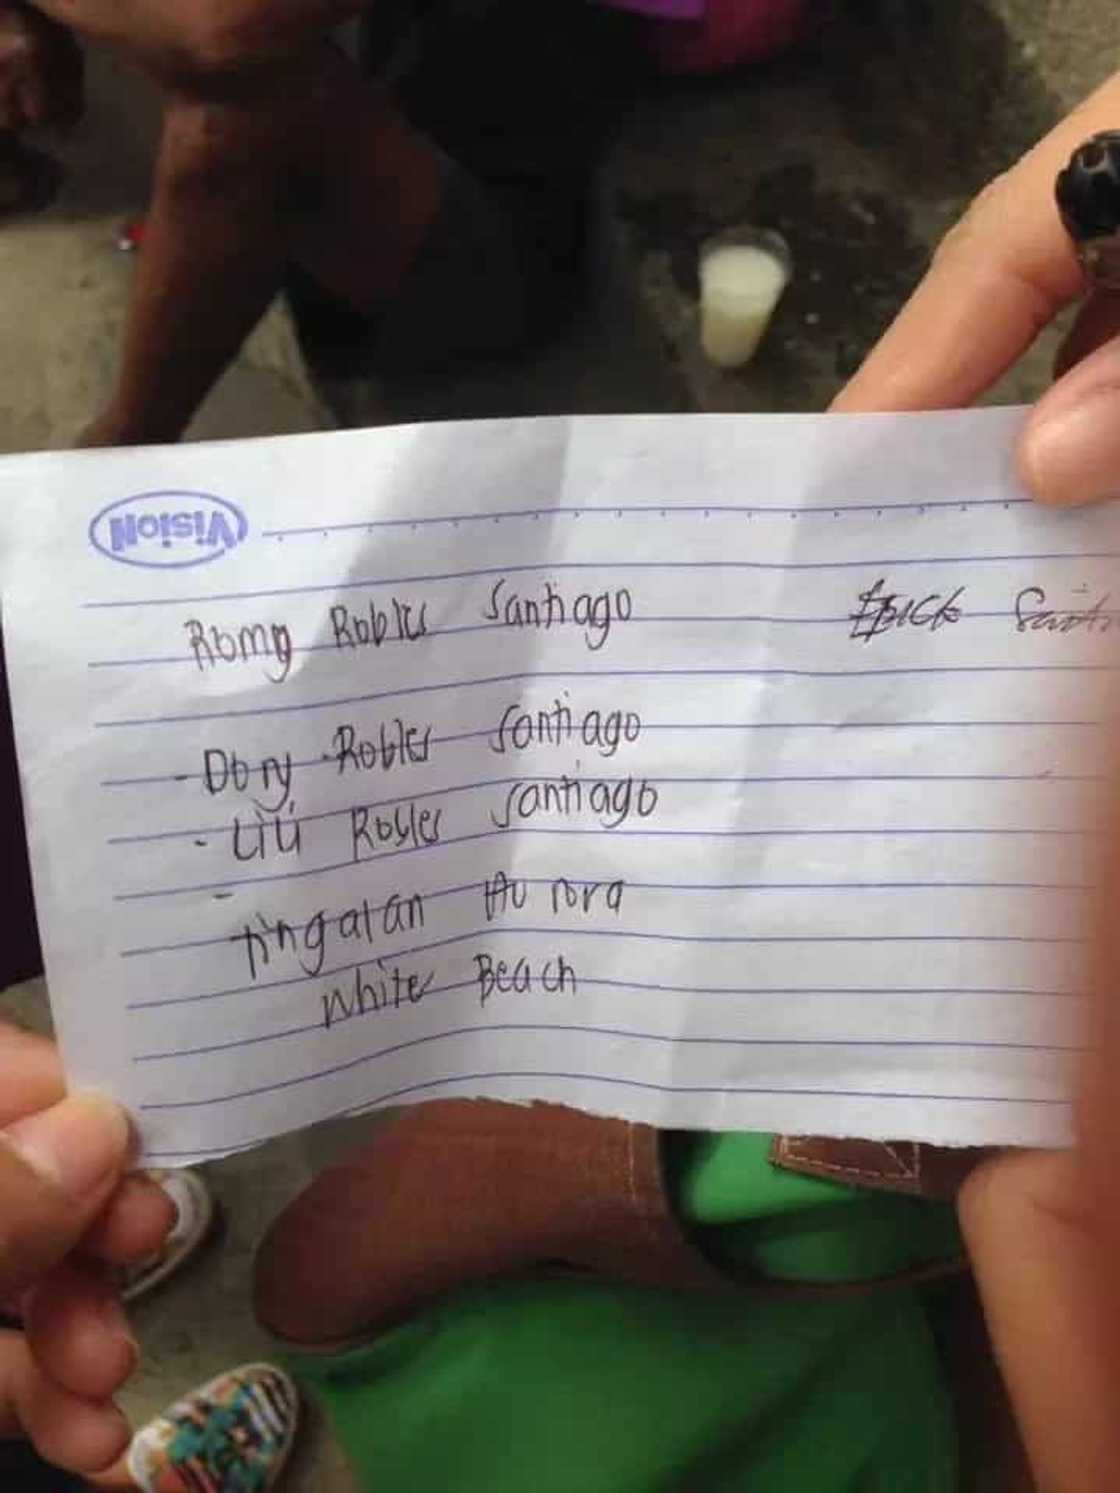 VisioN
Romy Robles Santiago
- Dory Robles Santiago
- Lili Robles Santiago
-
Tingalan Aurora
White Beach